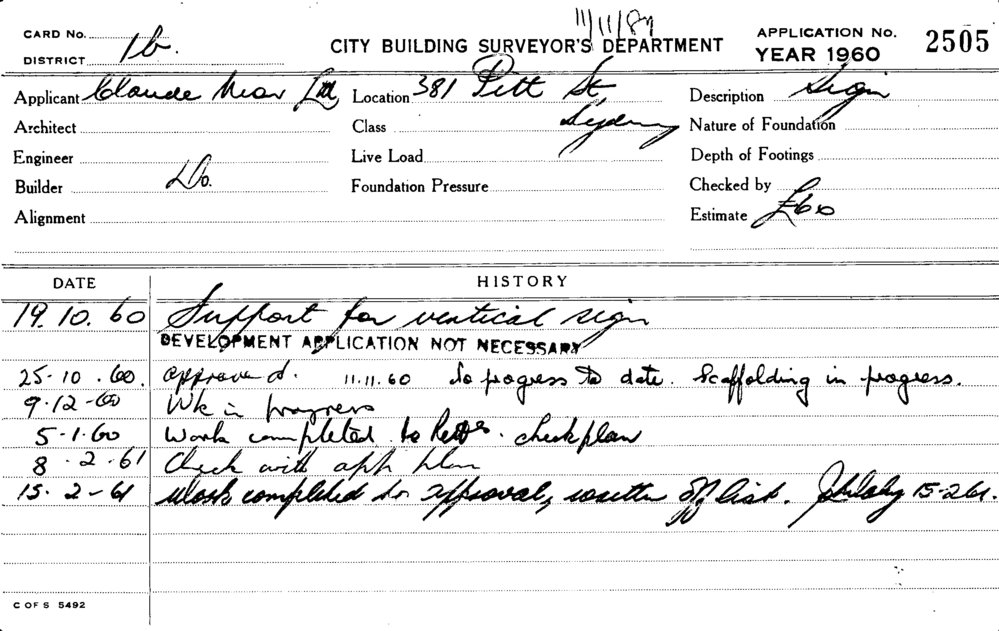 11/11/87
CARD No.
DISTRICT 1b.
CITY BUILDING SURVEYOR'S DEPARTMENT
APPLICATION No. 2505
YEAR 1960
Applicant Claude Neon Ltd Location 381 Pitt St Description Sign
Architect Class Sydney Nature of Foundation
Engineer Live Load Depth of Footings
Builder Do. Foundation Pressure Checked by
Alignment Estimate £60
DATE HISTORY
19.10.60 Support for vertical sign
DEVELOPMENT APPLICATION NOT NECESSARY
25.10.60. approved. 11.11.60 No progress to date. Scaffolding in progress.
9.12-60 Wk in progress
5-1-60 Work completed to check plan
8.2.61 Check with app plan
15.2-61 Work completed to approval, written off list. 15-2-61.
C OF S 5492